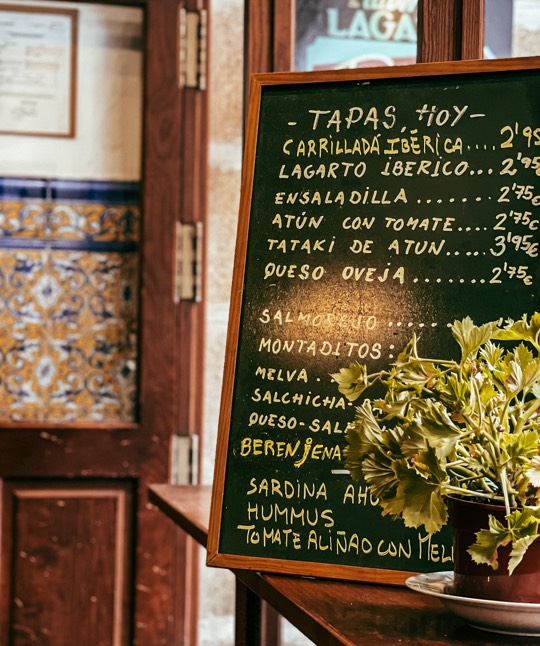 LAGA
- TAPAS HOY -
CARRILLADA IBÉRICA.... 2'95
LAGARTO IBERICO... 2'95€
ENSALADILLA ....... 2'75€
ATÚN CON TOMATE.... 2'75€
TATAKI DE ATUN..... 3'95€
QUESO OVEJA ....... 2'75€
SALMOREJO ......
MONTADITOS:
MELVA .
SALCHICHA
QUESO-SAL
BERENJENA
SARDINA AHU
HUMMUS
TOMATE ALIÑAO CON MEL